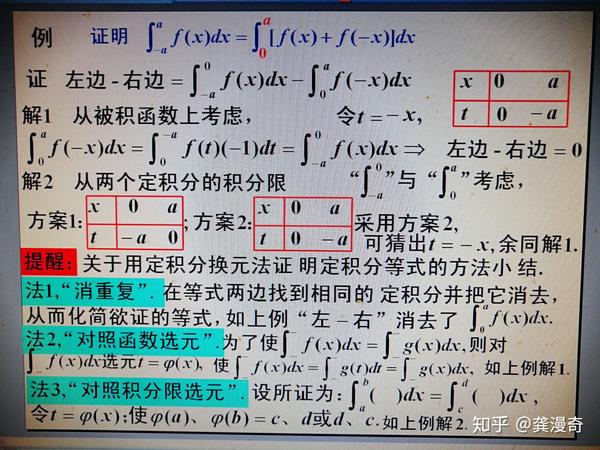 例 证明 ∫_{-a}^{a} f(x)dx = ∫_{0}^{a} [f(x) + f(-x)]dx
证 左边 - 右边 = ∫_{-a}^{0} f(x)dx - ∫_{0}^{a} f(-x)dx
x 0 a
t 0 -a
解1 从被积函数上考虑, 令t = -x,
∫_{0}^{a} f(-x)dx = ∫_{0}^{-a} f(t)(-1)dt = ∫_{-a}^{0} f(x)dx ⇒ 左边 - 右边 = 0
解2 从两个定积分的积分限 “∫_{-a}^{0}”与“∫_{0}^{a}”考虑,
方案1: x 0 a ; 方案2: x 0 a 采用方案2,
t -a 0 t 0 -a 可猜出t = -x, 余同解1.
提醒: 关于用定积分换元法证 明定积分等式的方法小 结.
法1,“消重复”. 在等式两边找到相同的 定积分并把它消去,
从而化简欲证的等式, 如上例“左 - 右”消去了 ∫_{0}^{a} f(x)dx.
法2,“对照函数选元”. 为了使∫_{-}^{-} f(x)dx = ∫_{-}^{-} g(x)dx, 则对
∫_{-}^{-} f(x)dx选元t = φ(x), 使∫_{-}^{-} f(x)dx = ∫_{-}^{-} g(t)dt = ∫_{-}^{-} g(x)dx, 如上例解1.
法3,“对照积分限选元”. 设所证为: ∫_{a}^{b} ( )dx = ∫_{c}^{d} ( )dx ,
令t = φ(x); 使φ(a)、φ(b) = c、d或d、c. 如上例解2.
知乎 @龚漫奇